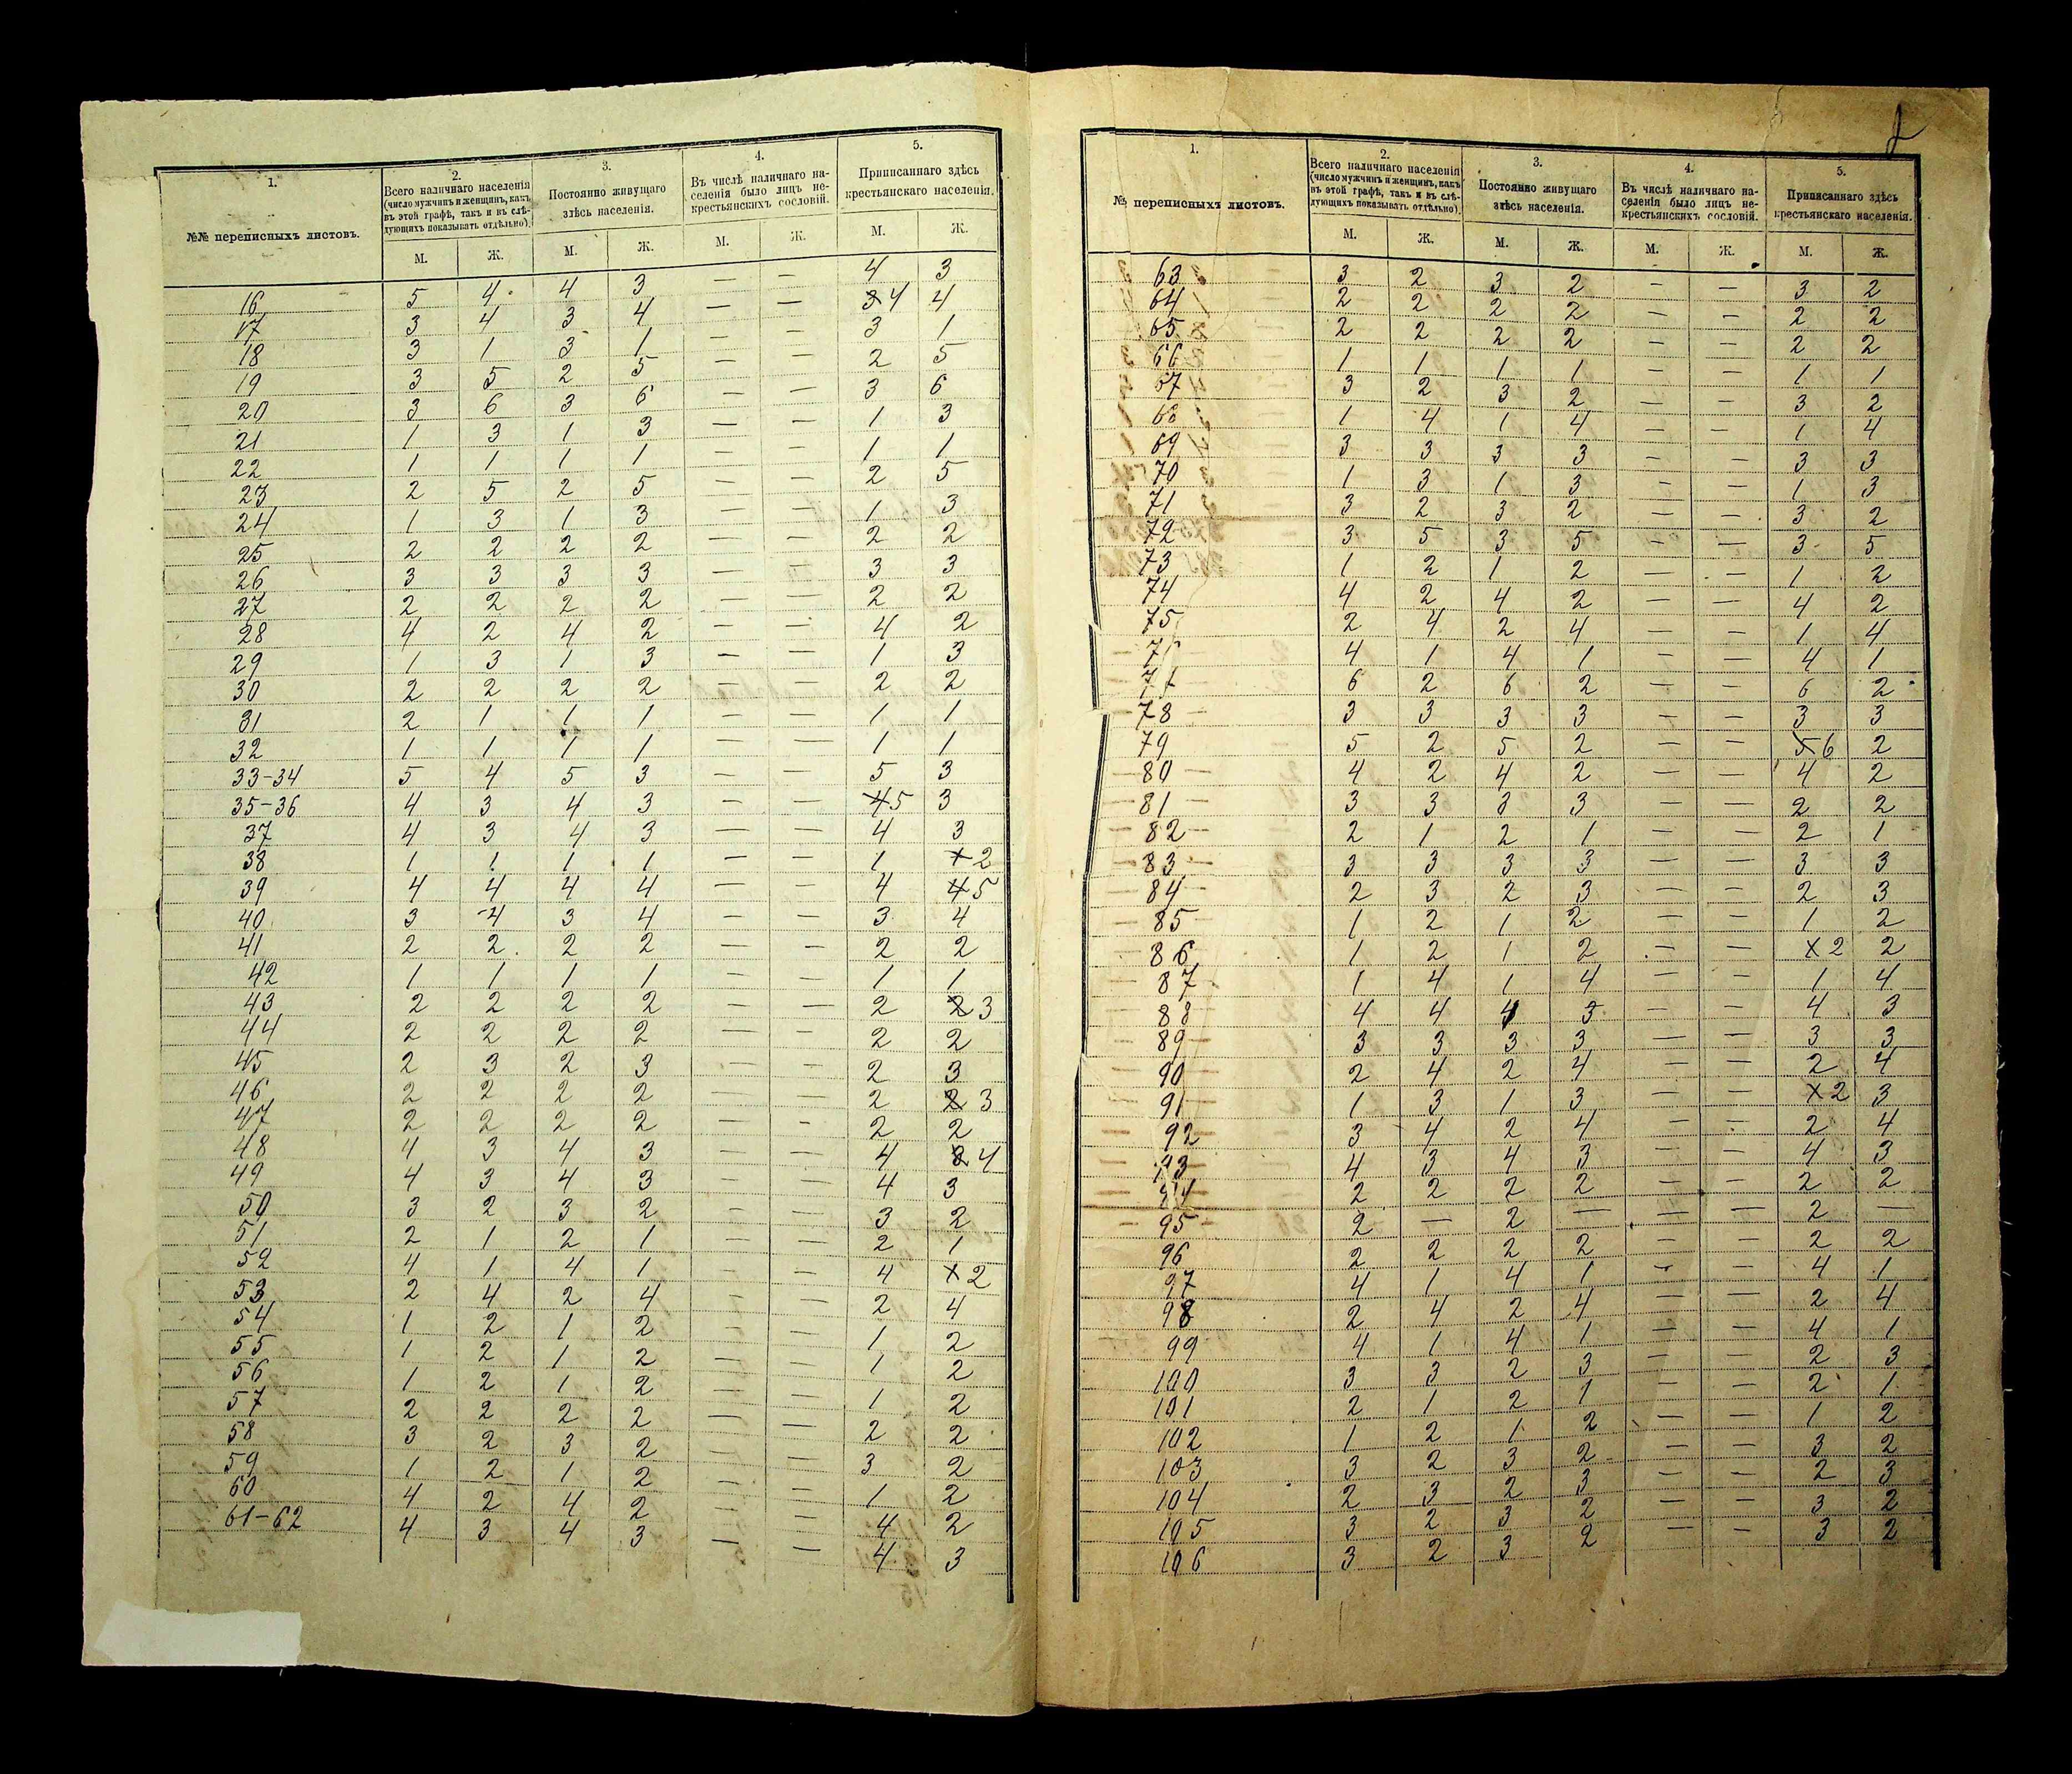 1. 2. 3. 4. 5.
№№ переписныхъ листовъ.
Всего наличнаго населенія
(число мужчинъ и женщинъ, какъ
въ этой графѣ, такъ и въ слѣ-
дующихъ показывать отдѣльно).
Постоянно живущаго
здѣсь населенія.
Въ числѣ наличнаго на-
селенія было лицъ не-
крестьянскихъ сословій.
Приписаннаго здѣсь
крестьянскаго населенія.
М. Ж. М. Ж. М. Ж. М. Ж.
16 5 4 4 3 — — 4 3
17 3 4 3 4 — — 3 4 4
18 3 1 3 1 — — 3 1
19 3 5 2 5 — — 2 5
20 3 6 3 6 — — 3 6
21 1 3 1 3 — — 1 3
22 1 1 1 1 — — 1 1
23 2 5 2 5 — — 2 5
24 1 3 1 3 — — 1 3
25 2 2 2 2 — — 2 2
26 3 3 3 3 — — 3 3
27 2 2 2 2 — — 2 2
28 4 2 4 2 — — 4 2
29 1 3 1 3 — — 1 3
30 2 2 2 2 — — 2 2
31 2 1 1 1 — — 1 1
32 1 1 1 1 — — 1 1
33-34 5 4 5 3 — — 5 3
35-36 4 3 4 3 — — 4 5 3
37 4 3 4 3 — — 4 3
38 1 1 1 1 — — 1 1 2
39 4 4 4 4 — — 4 4 5
40 3 4 3 4 — — 3 4
41 2 2 2 2 — — 2 2
42 1 1 1 1 — — 1 1
43 2 2 2 2 — — 2 2 3
44 2 2 2 2 — — 2 2
45 2 3 2 3 — — 2 3
46 2 2 2 2 — — 2 2 3
47 2 2 2 2 — — 2 2
48 4 3 4 3 — — 4 3 4
49 4 3 4 3 — — 4 3
50 3 2 3 2 — — 3 2
51 2 1 2 1 — — 2 1
52 4 1 4 1 — — 4 1 2
53 2 4 2 4 — — 2 4
54 1 2 1 2 — — 1 2
55 1 2 1 2 — — 1 2
56 1 2 1 2 — — 1 2
57 2 2 2 2 — — 2 2
58 3 2 3 2 — — 3 2
59 1 2 1 2 — — 1 2
60 4 2 4 2 — — 4 2
61-62 4 3 4 3 — — 4 3
1. 2. 3. 4. 5.
№ переписныхъ листовъ.
Всего наличнаго населенія
(число мужчинъ и женщинъ, какъ
въ этой графѣ, такъ и въ слѣ-
дующихъ показывать отдѣльно).
Постоянно живущаго
здѣсь населенія.
Въ числѣ наличнаго на-
селенія было лицъ не-
крестьянскихъ сословій.
Приписаннаго здѣсь
крестьянскаго населенія.
М. Ж. М. Ж. М. Ж. М. Ж.
63 3 2 3 2 — — 3 2
64 2 2 2 2 — — 2 2
65 2 2 2 2 — — 2 2
66 1 1 1 1 — — 1 1
67 3 2 3 2 — — 3 2
68 1 4 1 4 — — 1 4
69 3 3 3 3 — — 3 3
70 1 3 1 3 — — 1 3
71 3 2 3 2 — — 3 2
72 3 5 3 5 — — 3 5
73 1 2 1 2 — — 1 2
74 4 2 4 2 — — 4 2
75 2 4 2 4 — — 1 4
4 1 4 1 — — 4 1
6 2 6 2 — — 6 2
78 3 3 3 3 — — 3 3
79 5 2 5 2 — — 5 6 2
80 4 2 4 2 — — 4 2
81 3 3 3 3 — — 2 2
82 2 1 2 1 — — 2 1
83 3 3 3 3 — — 3 3
84 2 3 2 3 — — 2 3
85 1 2 1 2 — — 1 2
86 1 2 1 2 — — 1 2 2
87 1 4 1 4 — — 1 4
88 4 4 4 3 — — 4 3
89 3 3 3 3 — — 3 3
90 2 4 2 4 — — 2 4
91 1 3 1 3 — — 1 2 3
92 3 4 2 4 — — 2 4
93 4 3 4 3 — — 4 3
94 2 2 2 2 — — 2 2
95 2 — 2 — — — 2 —
96 2 2 2 2 — — 2 2
97 4 1 4 1 — — 4 1
98 2 4 2 4 — — 2 4
99 4 1 4 1 — — 4 1
100 3 3 2 3 — — 2 3
101 2 1 2 1 — — 2 1
102 1 2 1 2 — — 1 2
103 3 2 3 2 — — 3 2
104 2 3 2 3 — — 2 3
105 3 2 3 2 — — 3 2
106 3 2 3 2 — — 3 2